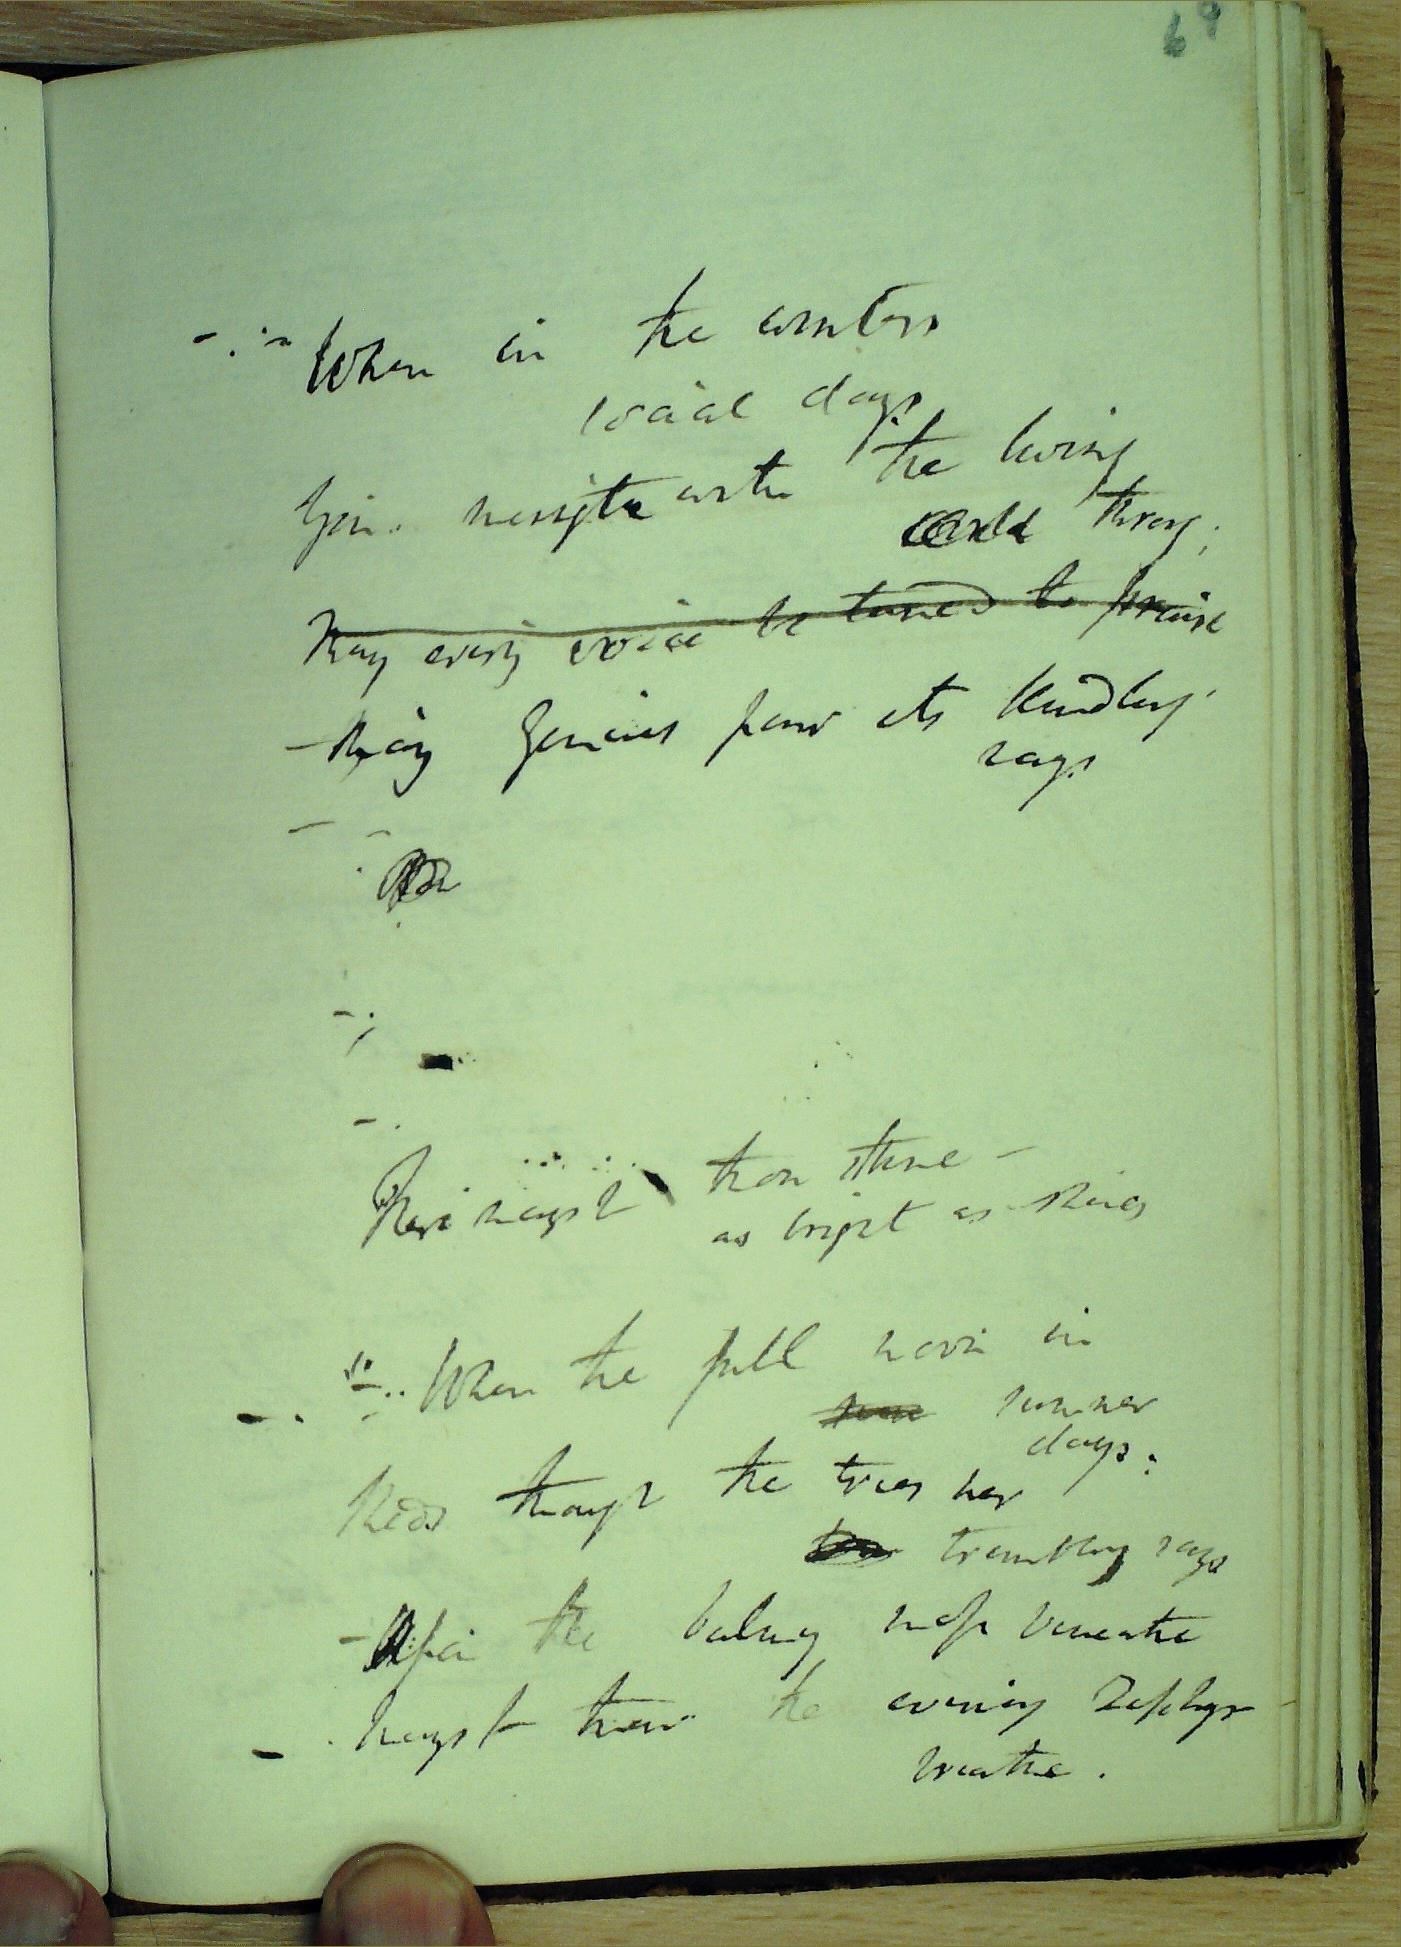 69
When in the winters
social days
thou minglest with the living
throng;
May every voice be tuned to praise
May Genius pour its kindling
rays
mayst thou shine -
as bright as shines
When the full moon in
summer
days:
Sheds through the trees her
trembling rays
the balmy moss beneath
Mayst thou the evening Zephyr
breathe.